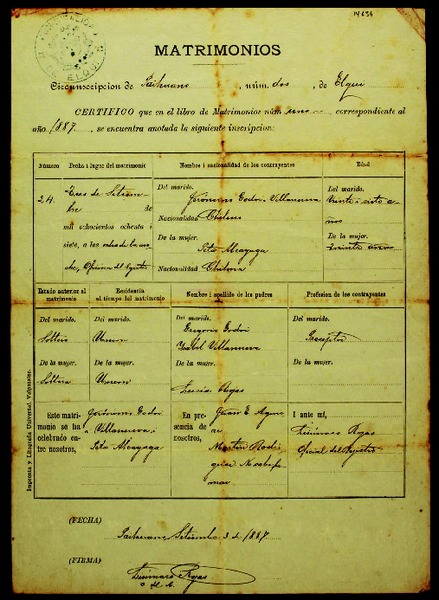 14636
MATRIMONIOS
Circunscripcion de Paihuano, núm. dos, de Elqui
CERTIFICO que en el libro de Matrimonios núm. uno correspondiente al
año 1887, se encuentra anotada la siguiente inscripcion:
Número Fecha i lugar del matrimonio Nombres i nacionalidad de los contrayentes Edad
24. Tres de Setiem-
bre de
mil ochocientos ochenta i
siete, a las ocho de la no-
che, Oficina del Rejistro
Del marido. Jerónimo Godoi Villanueva
Nacionalidad Chilena
De la mujer. Peta Alcayaga
Nacionalidad Chilena
Del marido.
Veinte i siete a-
ños
De la mujer.
Estado anterior al matrimonio Residencia al tiempo del matrimonio Nombres i apellido de los padres Profesion de los contrayentes
Del marido. Del marido. Del marido. Del marido.
Soltero Union Gregorio Godoi Preceptor
Isabel Villanueva
De la mujer. De la mujer. De la mujer. De la mujer.
Soltera Union Lucia Rojas
Este matri-
monio se ha
celebrado en-
tre nosotros,
Jerónimo Godoi
Villanueva i
Peta Alcayaga
En pre-
sencia de
nosotros,
Juan E.
Martin Rodri-
guez
I ante mí,
Rojas
Oficial del Rejistro
Imprenta y Litografía Universal, Valparaíso.
(FECHA)
Paihuano Setiembre 3 de 1887.
(FIRMA)
Rojas